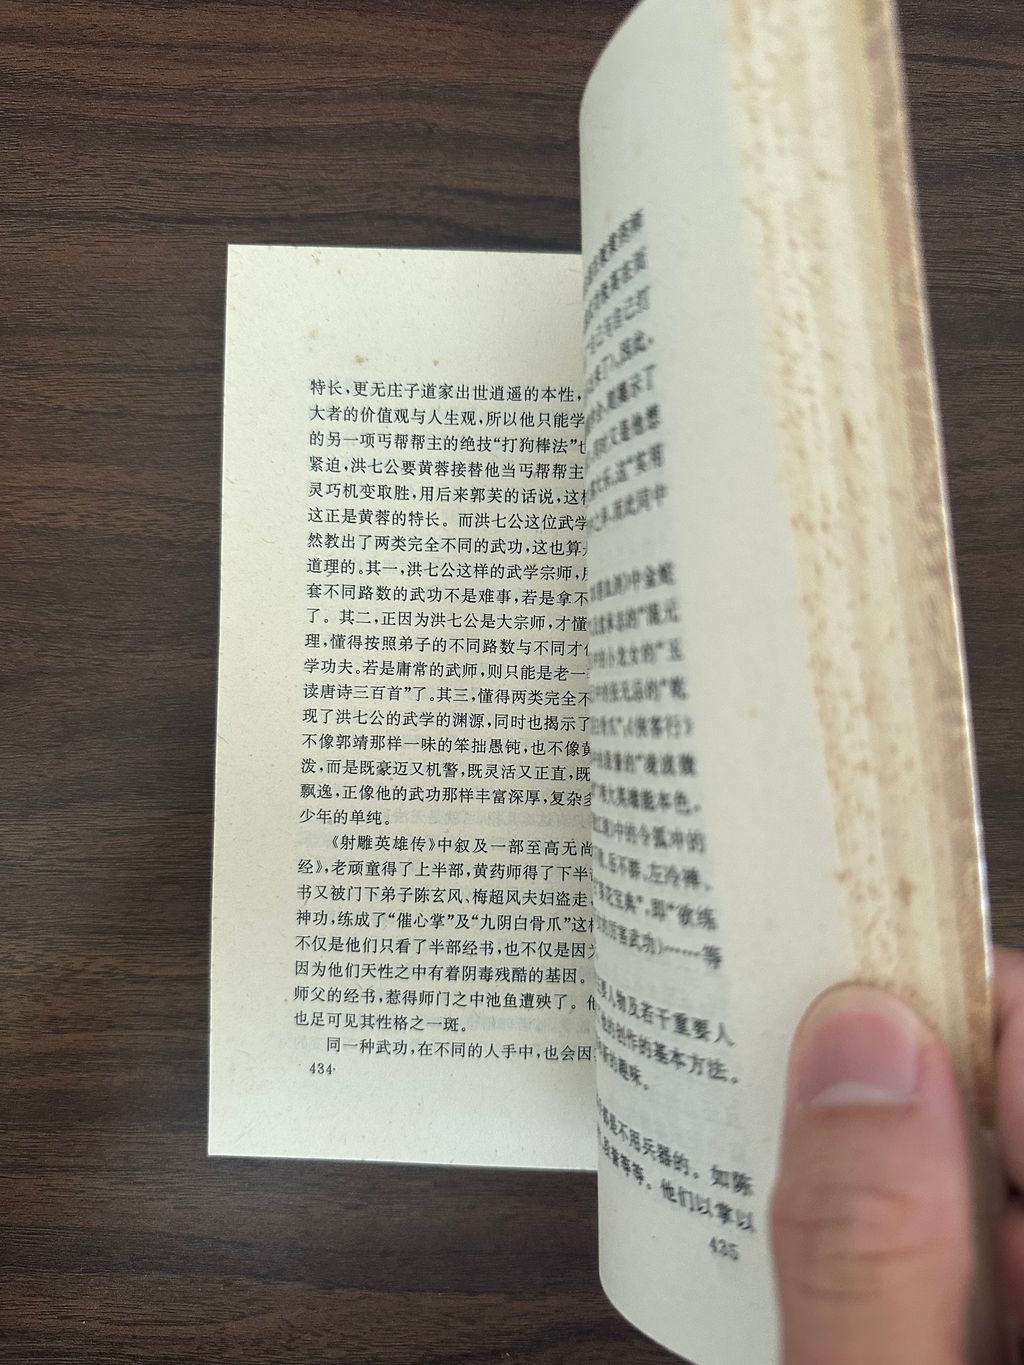 特长，更无庄子道家出世逍遥的本性，
大者的价值观与人生观，所以他只能学
的另一项丐帮帮主的绝技“打狗棒法”也
紧迫，洪七公要黄蓉接替他当丐帮帮主
灵巧机变取胜，用后来郭芙的话说，这样
这正是黄蓉的特长。而洪七公这位武学
然教出了两类完全不同的武功，这也算是
道理的。其一，洪七公这样的武学宗师，
套不同路数的武功不是难事，若是拿不
了。其二，正因为洪七公是大宗师，才懂
理，懂得按照弟子的不同路数与不同才
学功夫。若是庸常的武师，则只能是老一
读唐诗三百首”了。其三，懂得两类完全不
现了洪七公的武学的渊源，同时也揭示了
不像郭靖那样一味的笨拙愚钝，也不像黄
泼，而是既豪迈又机警，既灵活又正直，既
飘逸，正像他的武功那样丰富深厚，复杂多
少年的单纯。
《射雕英雄传》中叙及一部至高无尚
经》，老顽童得了上半部，黄药师得了下半
书又被门下弟子陈玄风、梅超风夫妇盗走，
神功，练成了“催心掌”及“九阴白骨爪”这样
不仅是他们只看了半部经书，也不仅是因为
因为他们天性之中有着阴毒残酷的基因。
师父的经书，惹得师门之中池鱼遭殃了。他
也足可见其性格之一斑。
同一种武功，在不同的人手中，也会因
434
自己与自己打
了），因此，
揭示了
同时又是他想
这“实用
而此同中
血剑》中金蛇
的“混元
中的小龙女的“玉
中的张无忌的“乾
《侠客行》
的“凌波微
大英雄能本色，
中的令狐冲的
岳不群、左冷禅、
花宝典”，即“欲练
的厉害武功）……等
要人物及若干重要人
他的创作的基本方法。
的趣味。
都是不用兵器的。如陈
段誉等等。他们以掌以
435